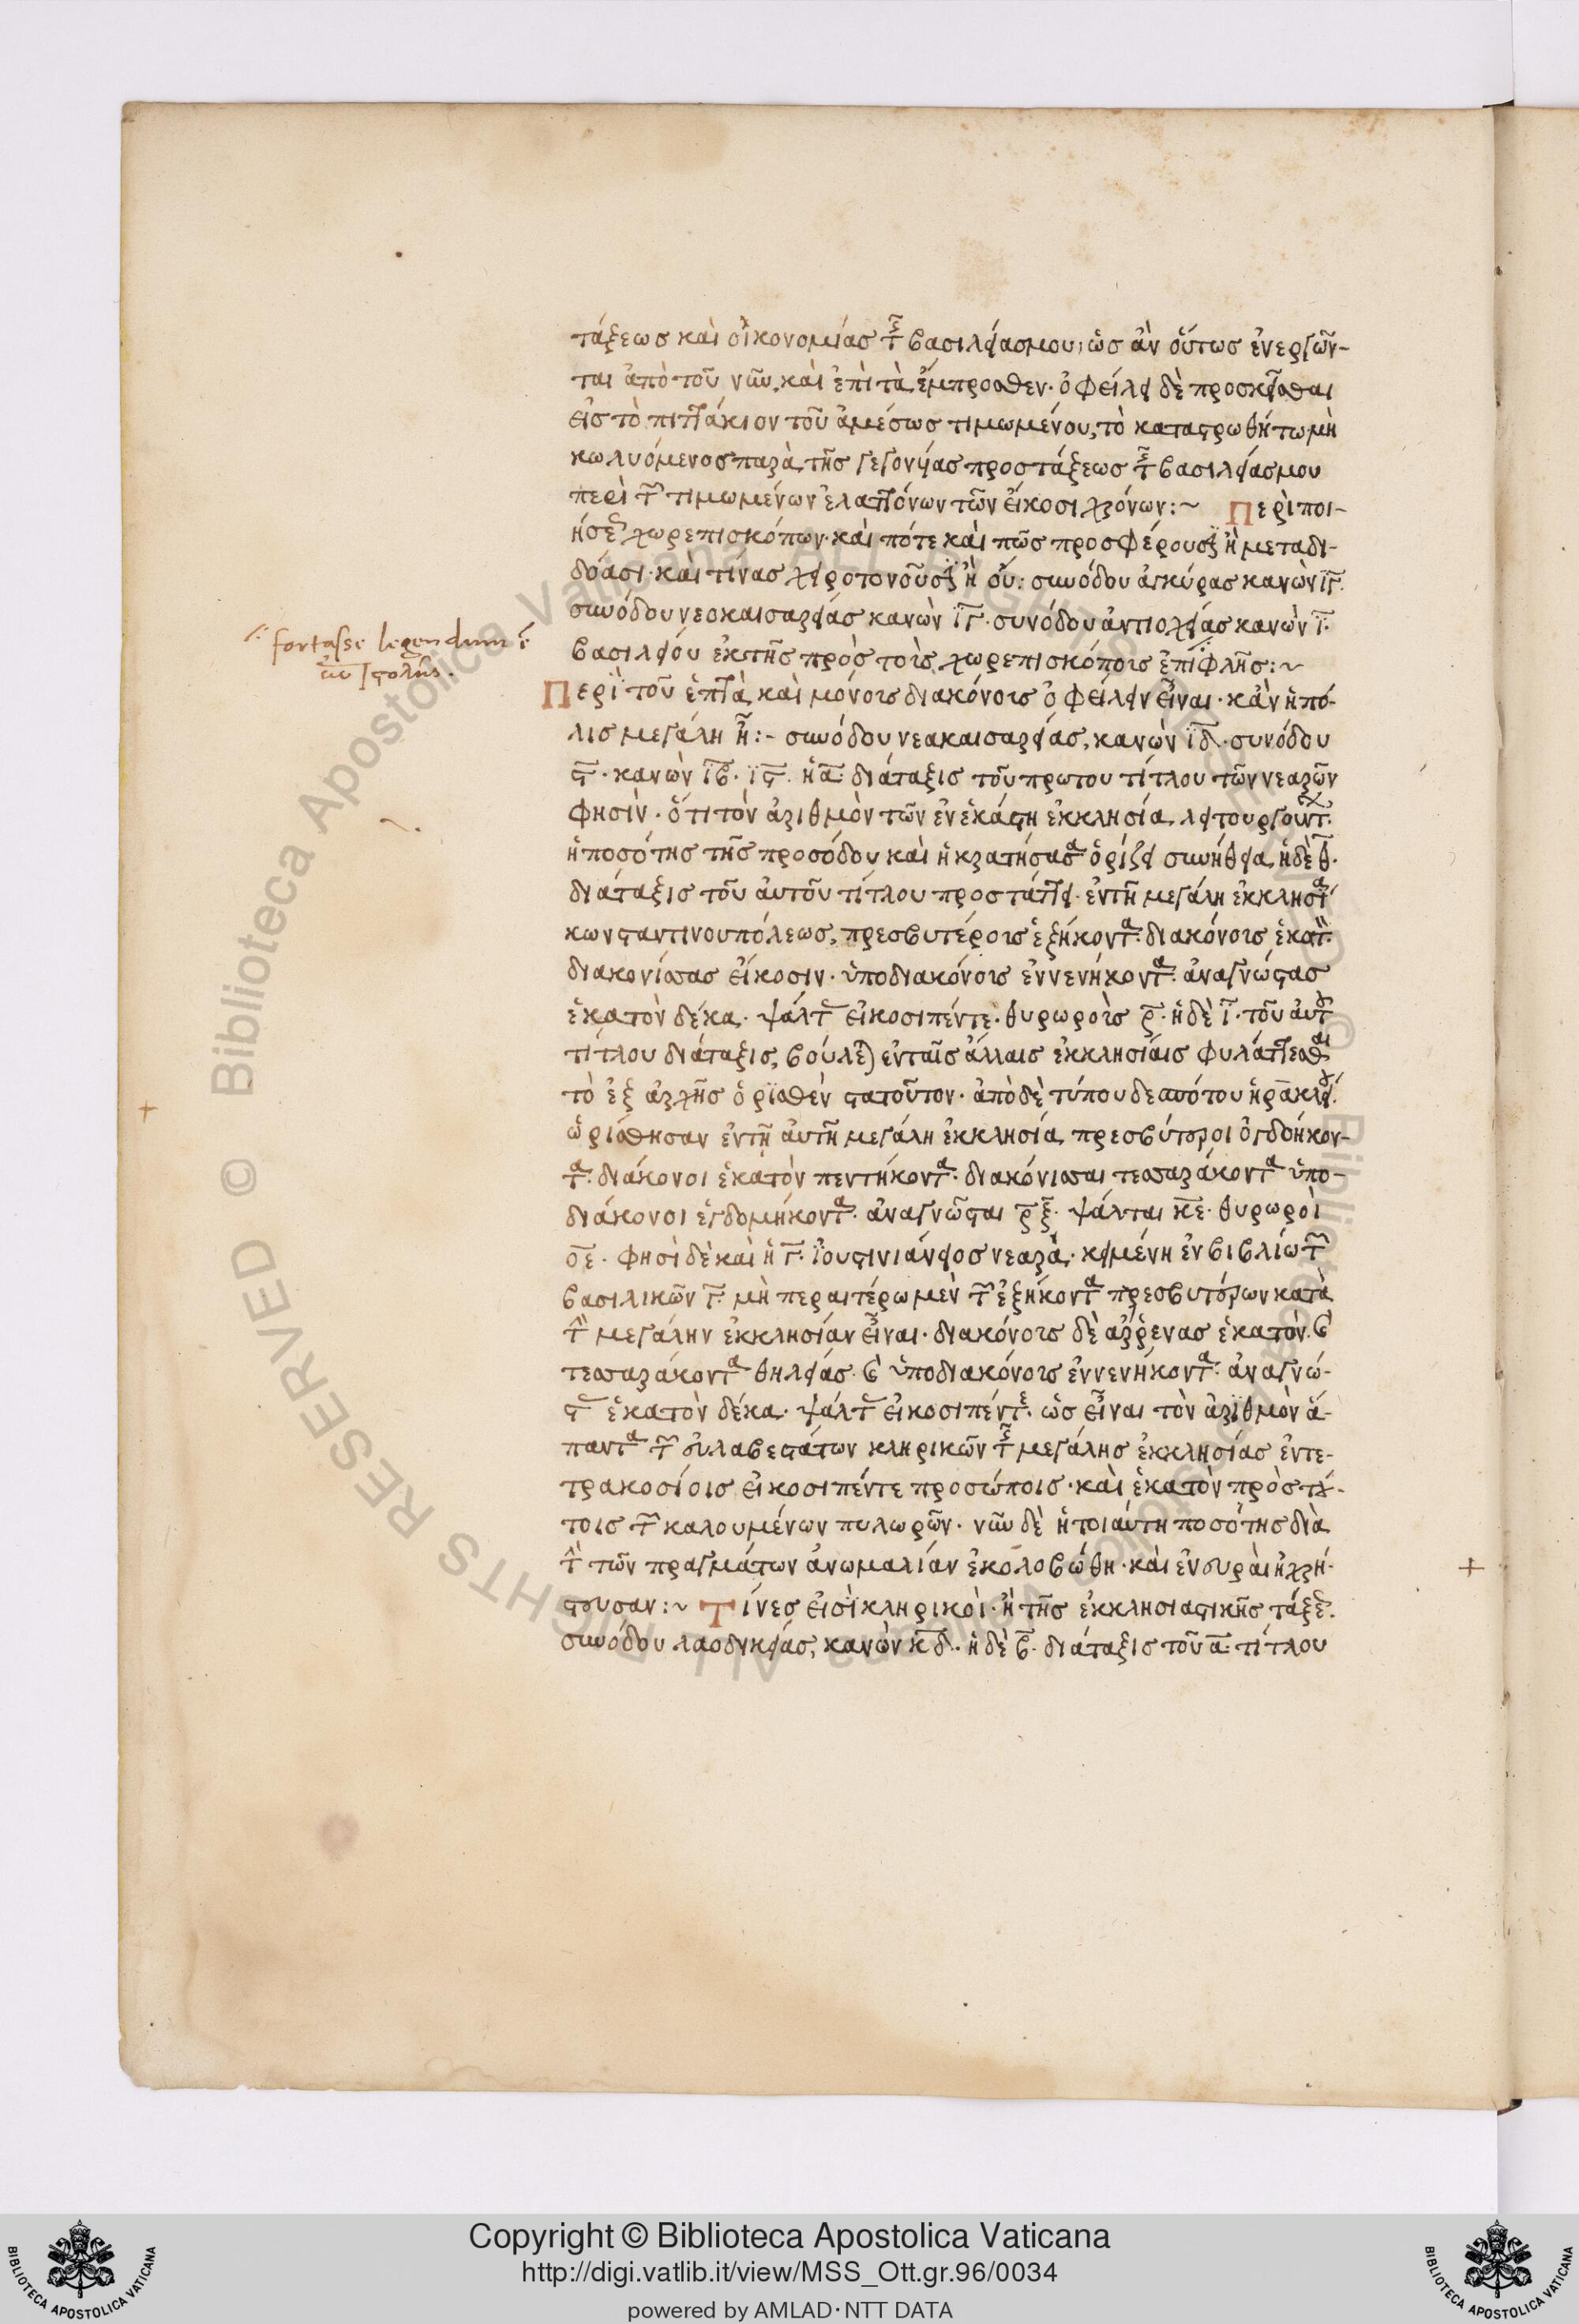 τάξεως καὶ οἰκονομίας τῆς βασιλείας μου, ὡς ἂν οὕτως ἐνεργῶν-
ται ἀπὸ τοῦ νῦν, καὶ ἐπὶ τὰ ἔμπροσθεν· ὀφείλει δὲ προσκεῖσθαι
εἰς τὸ πιττάκιον τοῦ ἀμέσως τιμωμένου, τὸ καταστρωθήτω μὴ
κωλυόμενος παρὰ τῆς γεγονυίας προστάξεως τῆς βασιλείας μου
περὶ τῶν τιμωμένων ἐλαττόνων τῶν εἴκοσι χρόνων:~ Περὶ ποι-
ήσε χωρεπισκόπων· καὶ πότε καὶ πῶς προσφέρουσιν ἢ μεταδι-
δόασι· καὶ τίνας χειροτονοῦσιν ἢ οὔ: συνόδου ἀγκύρας κανὼν ιγ.
συνόδου νεοκαισαρείας κανὼν ιγ· συνόδου ἀντιοχείας κανὼν ι·
βασιλείου ἐκ τῆς πρὸς τοὺς χωρεπισκόπους
fortasse legendum ẽ
Περὶ τοῦ ἑπτὰ καὶ μόνους διακόνους ὀφείλειν εἶναι· κἂν ἡ πό-
λις μεγάλη ᾖ:- συνόδου νεακαισαρείας, κανὼν ιδ· συνόδου
ς· κανὼν ιβ· ις· ἡ α· διάταξις τοῦ πρώτου τίτλου τῶν νεαρῶν
φησὶν· ὅτι τὸν ἀριθμὸν τῶν ἐν ἑκάστη ἐκκλησία λειτουργούντων·
ἡ ποσότης τῆς προσόδου καὶ ἡ κρατήσασα ὁρίζει συνήθεια, ἡ δὲ θ·
διάταξις τοῦ αὐτοῦ τίτλου προστάττει· ἐν τῇ μεγάλη ἐκκλησία
κωνσταντινουπόλεως, πρεσβυτέρους ἑξήκοντα· διακόνους ἑκατὸν·
διακονίσσας εἴκοσιν· ὑποδιακόνους ἐννενήκοντα· ἀναγνώστας
ἑκατὸν δέκα· ψάλτας εἰκοσιπέντε· θυρωροὺς ρ· ἡ δὲ ι· τοῦ αὐτοῦ
τίτλου διάταξις, βούλεται ἐν ταῖς ἄλλαις ἐκκλησίαις φυλάττεσθαι
τὸ ἐξ ἀρχῆς ὁρισθὲν στατοῦτον· ἀπὸ δὲ τύπου δεσπότου ἡρακλείου·
ὡρίσθησαν ἐν τῇ αὐτῇ μεγάλη ἐκκλησία πρεσβύτεροι ὀγδοήκον-
τα· διάκονοι ἑκατὸν πεντήκοντα· διακόνισσαι τεσσαράκοντα ὑπο-
διάκονοι ἑβδομήκοντα· ἀναγνῶσται ρξ· ψάλται κε· θυρωροὶ
οε· φησὶ δὲ καὶ ἡ γ· ἰουστινιάνειος νεαρὰ· κειμένη ἐν βιβλίω τῶν
βασιλικῶν γ· μὴ περαιτέρω μὲν τῶν ἑξήκοντα πρεσβυτέρων κατὰ
τὴν μεγάλην ἐκκλησίαν εἶναι· διακόνους δὲ ἄρρενας ἑκατὸν· καὶ
τεσσαράκοντα θηλείας· καὶ ὑποδιακόνους ἐννενήκοντα· ἀναγνώ-
στας ἑκατὸν δέκα· ψάλτας εἰκοσιπέντε· ὡς εἶναι τὸν ἀριθμὸν ἅ-
παντα τῶν εὐλαβεστάτων κληρικῶν τῆς μεγάλης ἐκκλησίας ἐν τε-
τρακοσίοις εἰκοσιπέντε προσώποις· καὶ ἑκατὸν πρὸς τού-
τοις τῶν καλουμένων πυλωρῶν· νῦν δὲ ἡ τοιαύτη ποσότης διὰ
τὴν τῶν πραγμάτων ἀνωμαλίαν ἐκολοβώθη·
Τίνες εἰσὶ κληρικοὶ· ἢ τῆς ἐκκλησιαστικῆς τάξεως·
συνόδου λαοδικείας, κανὼν κδ· ἡ δὲ β· διάταξις τοῦ α· τίτλου
Copyright © Biblioteca Apostolica Vaticana
http://digi.vatlib.it/view/MSS_Ott.gr.96/0034
powered by AMLAD·NTT DATA
BIBLIOTECA APOSTOLICA VATICANA
BIBLIOTECA APOSTOLICA VATICANA
© Biblioteca Apostolica Vaticana ALL RIGHTS RESERVED